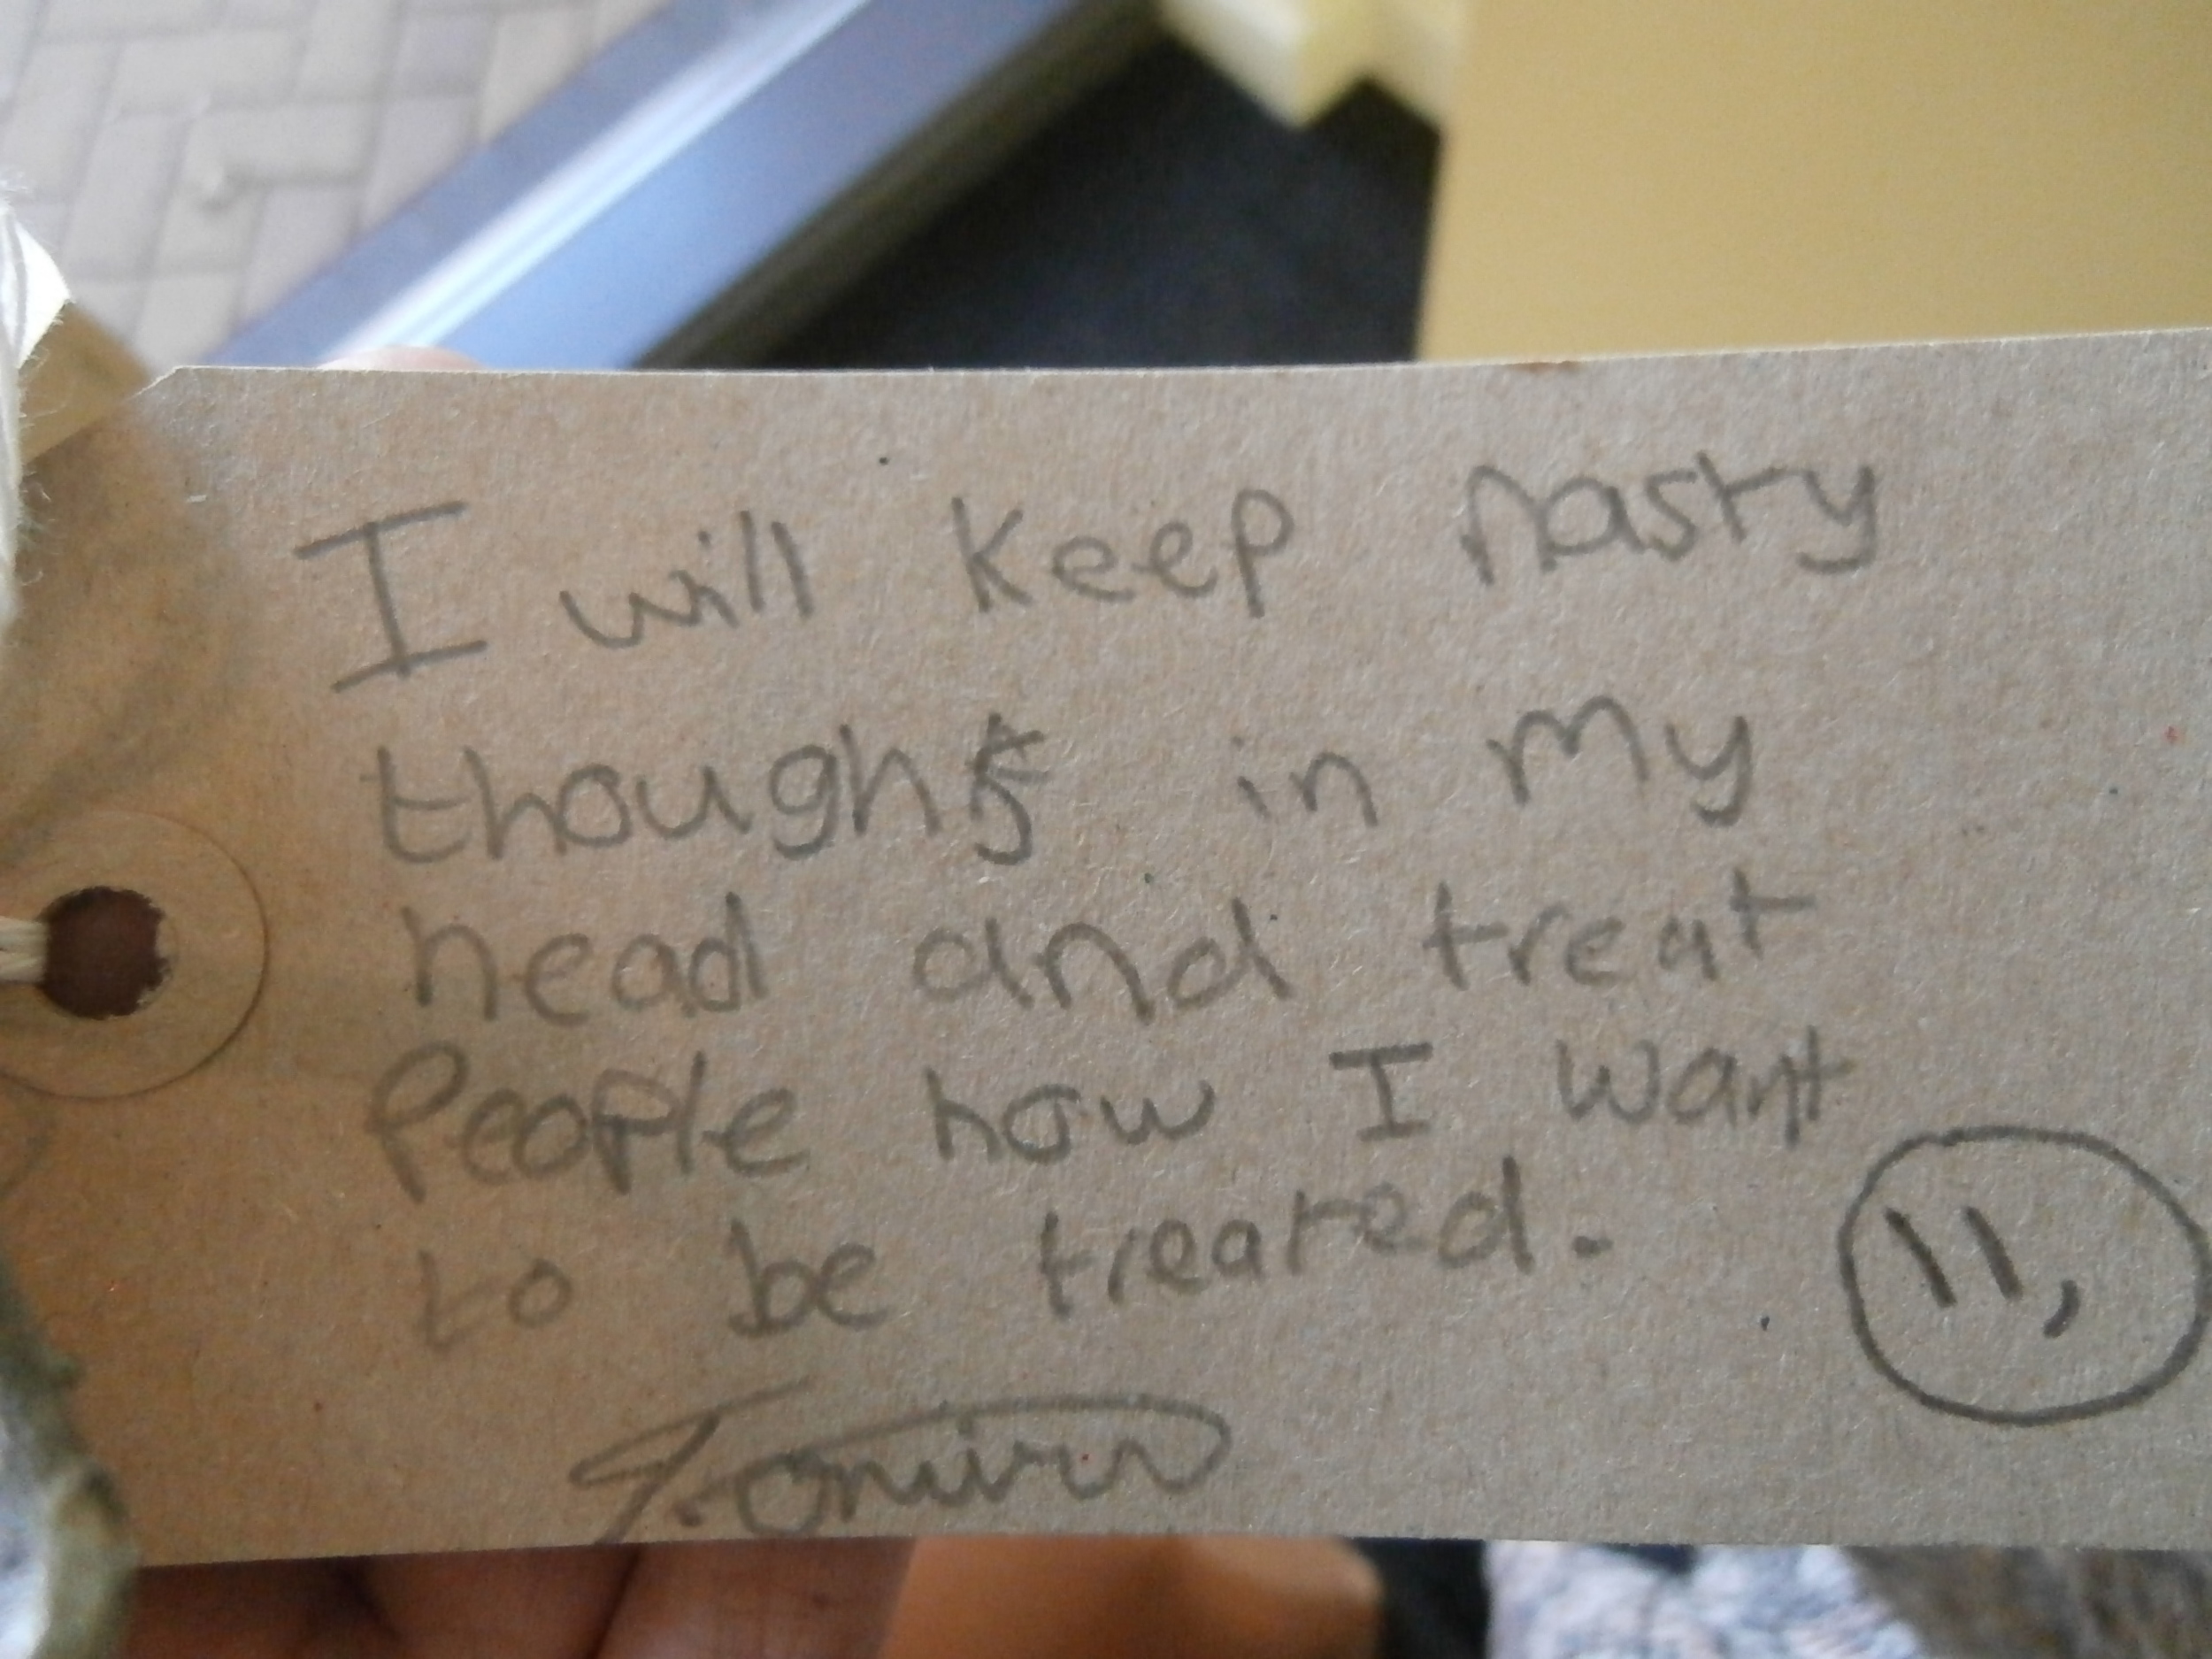 I will keep nasty
thoughts in my
head and treat
People how I want
to be treated.